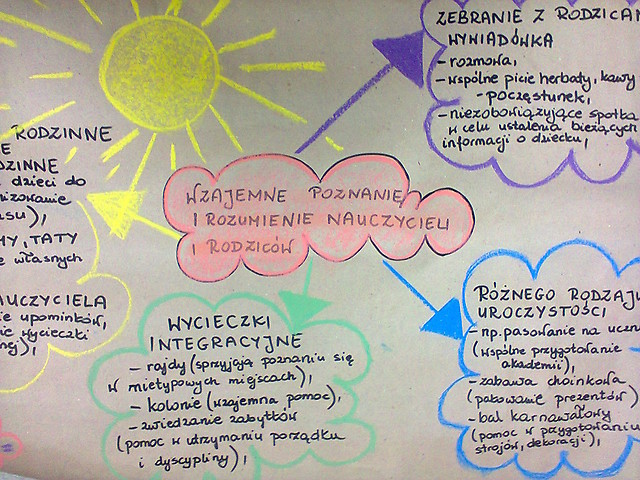 WZAJEMNE POZNANIE
I ROZUMIENIE NAUCZYCIELI
I RODZICÓW
ZEBRANIE Z RODZICAM
WYWIADÓWKA
- rozmowa,
- wspólne picie herbaty, kawy
- poczęstunek,
- niezobowiązujące spotka
w celu ustalenia bieżących
informacji o dziecku,
RODZINNE
IE
DZINNE
dzieci do
nizowanie
su),
MY, TATY
e własnych
AUCZYCIELA
ie upominków,
ie wycieczki
nej),
WYCIECZKI
INTEGRACYJNE
- rajdy (sprzyjają poznaniu się
w nietypowych miejscach),
- kolonie (wzajemna pomoc),
- zwiedzanie zabytków
(pomoc w utrzymaniu porządku
i dyscypliny),
RÓŻNEGO RODZAJU
UROCZYSTOŚCI
- np. pasowanie na uczn
(wspólne przygotowanie
akademii),
- zabawa choinkowa
(pakowanie prezentów)
- bal karnawałowy
(pomoc w przygotowaniu
strojów, dekoracji),